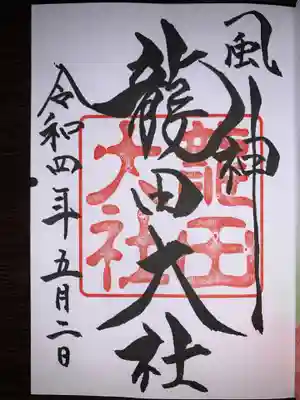 風神
龍田大社
龍田
大社
令和四年五月二日